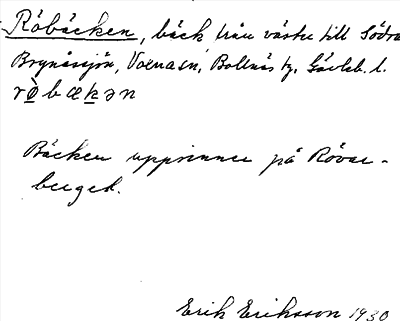 Röbäcken, bäck från väster till Södra
Brynässjön, Voxnasn, Bollnäs tg, Gävleb. l.
rò̱bæḵən
Bäcken upprinner på Rövar-
berget.
Erik Eriksson 1930